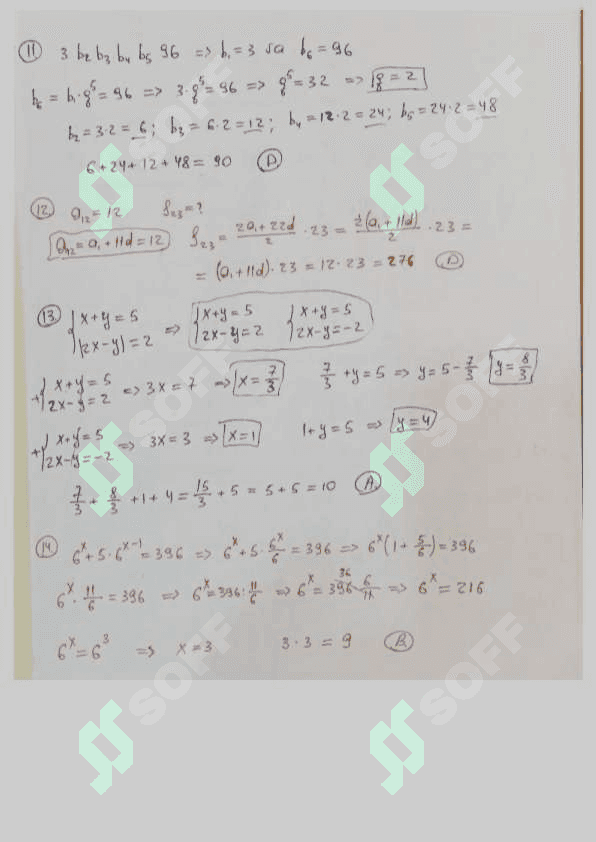 11 3 b₂ b₃ b₄ b₅ 96 => b₁ = 3 va b₆ = 96
b₆ = b₁ · q⁵ = 96 => 3 · q⁵ = 96 => q⁵ = 32 => q = 2
b₂ = 3·2 = 6; b₃ = 6·2 = 12; b₄ = 12·2 = 24; b₅ = 24·2 = 48
6 + 24 + 12 + 48 = 90 D
12. a₁₂ = 12 S₂₃ = ?
a₁₂ = a₁ + 11d = 12 S₂₃ = (2a₁ + 22d)/2 · 23 = 2(a₁ + 11d)/2 · 23 =
= (a₁ + 11d) · 23 = 12 · 23 = 276 D
13. {x+y=5 |2x-y|=2 => {x+y=5 2x-y=2 {x+y=5 2x-y=-2
+{x+y=5 2x-y=2 => 3x = 7 => x = 7/3 7/3 + y = 5 => y = 5 - 7/3 y = 8/3
+{x+y=5 2x-y=-2 => 3x = 3 => x = 1 1 + y = 5 => y = 4
7/3 + 8/3 + 1 + 4 = 15/3 + 5 = 5 + 5 = 10 A
14. 6ˣ + 5 · 6ˣ⁻¹ = 396 => 6ˣ + 5 · 6ˣ/6 = 396 => 6ˣ(1 + 5/6) = 396
6ˣ · 11/6 = 396 => 6ˣ = 396 : 11/6 => 6ˣ = 396 36 · 6/11 => 6ˣ = 216
6ˣ = 6³ => x = 3 3 · 3 = 9 B
SOFF
SOFF
SOFF
SOFF
SOFF
SOFF